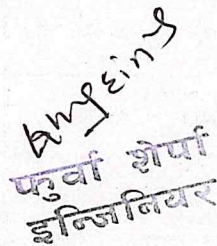 फुर्वा शेर्पा
इन्जिनियर